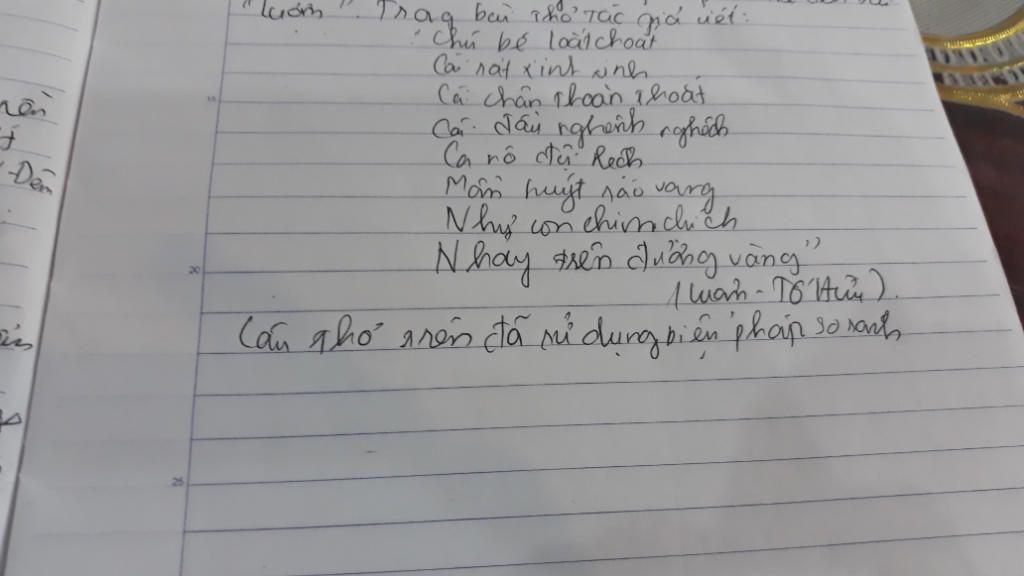 "Lượm". Trong bài thơ tác giả viết:
"Chú bé loắt choắt
Cái xắt xinh xinh
Cái chân thoăn thoắt
Cái đầu nghênh nghênh
Ca nô đội lệch
Mồm huýt sáo vang
Như con chim chích
Nhảy trên đường vàng"
(Lượm - Tố Hữu).
Câu thơ trên đã sử dụng biện pháp so sánh
Đến
15
20
25